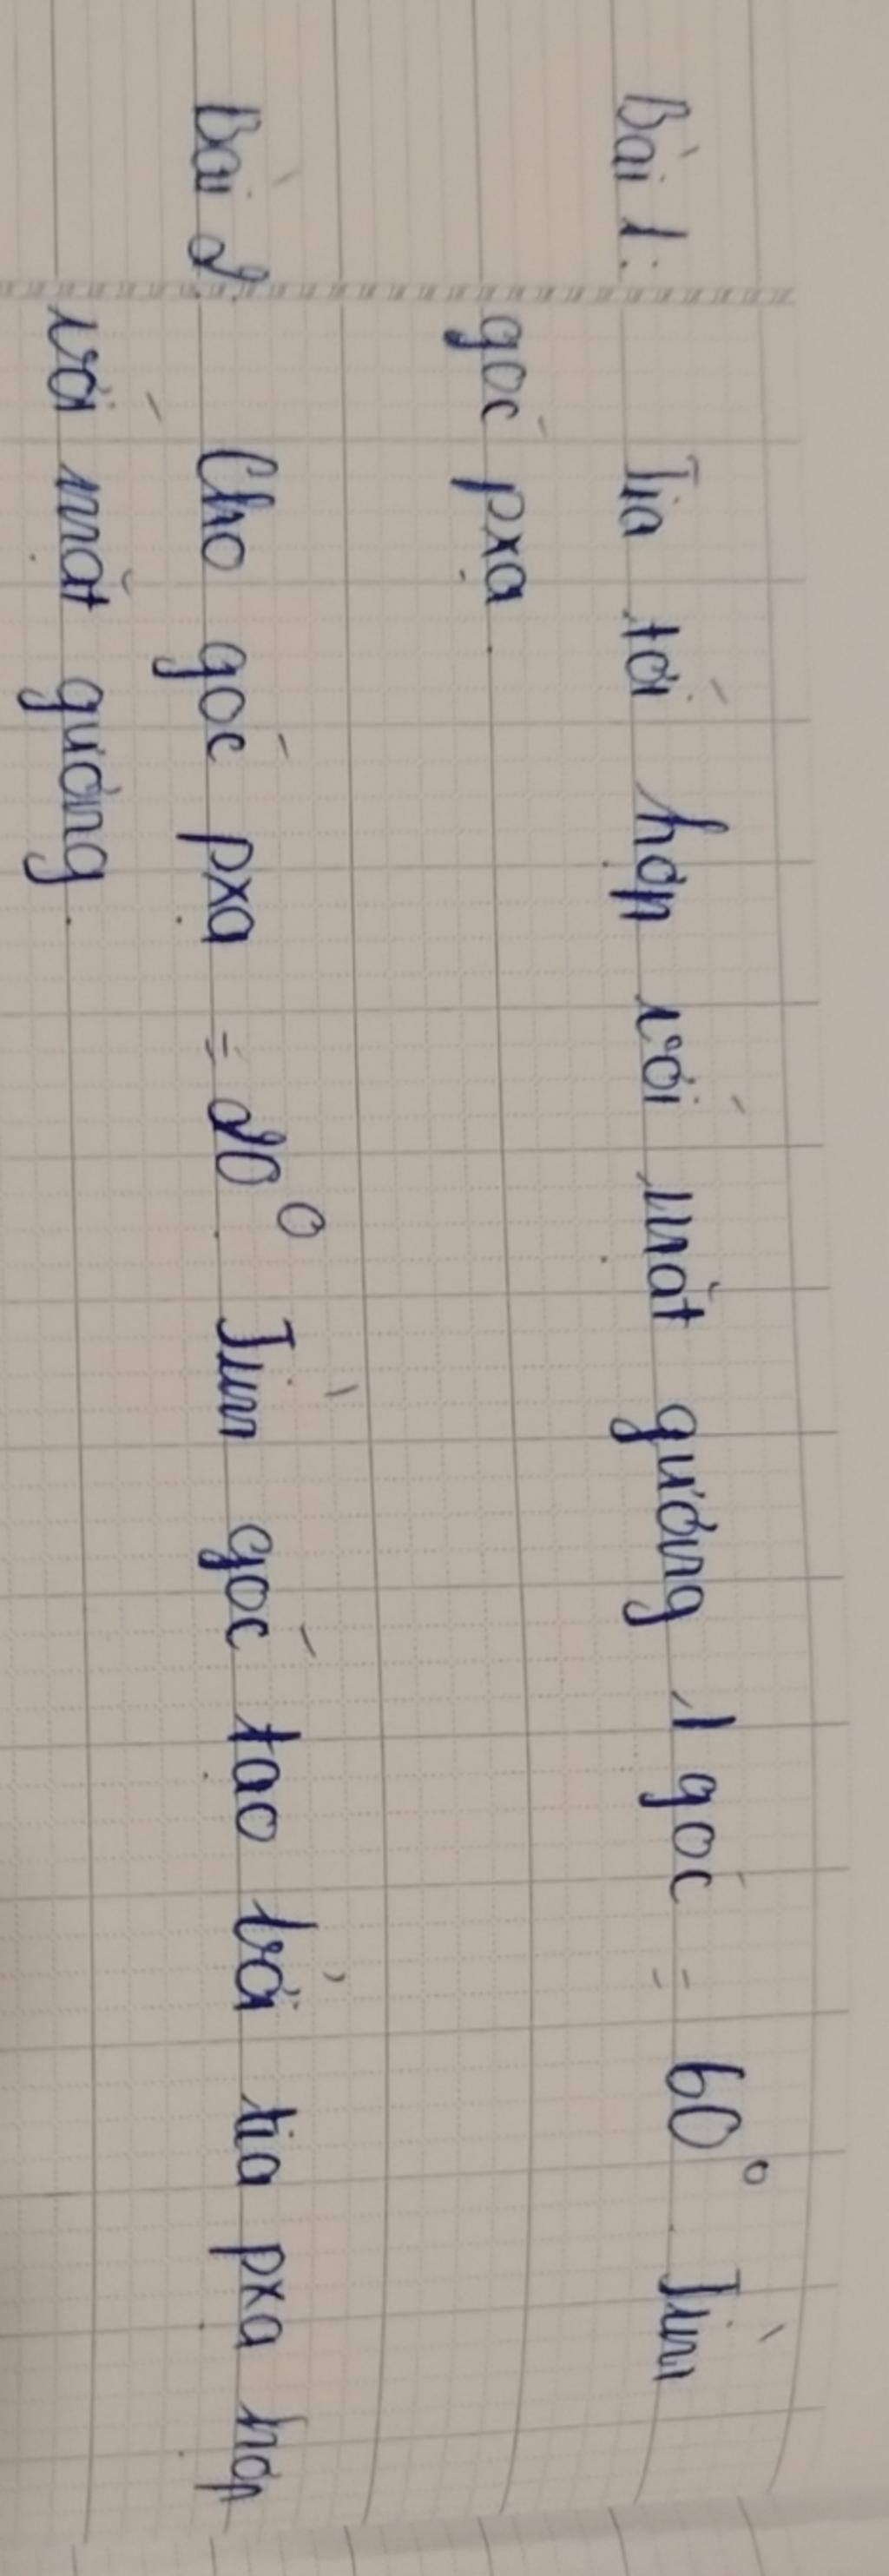 Bài 1: Tia tới hợp với mặt gương 1 góc = 60°. Tìm
góc pxạ.
Bài 2. Cho góc pxạ = 20°. Tìm góc tạo bởi tia pxạ hợp
với mặt gương.